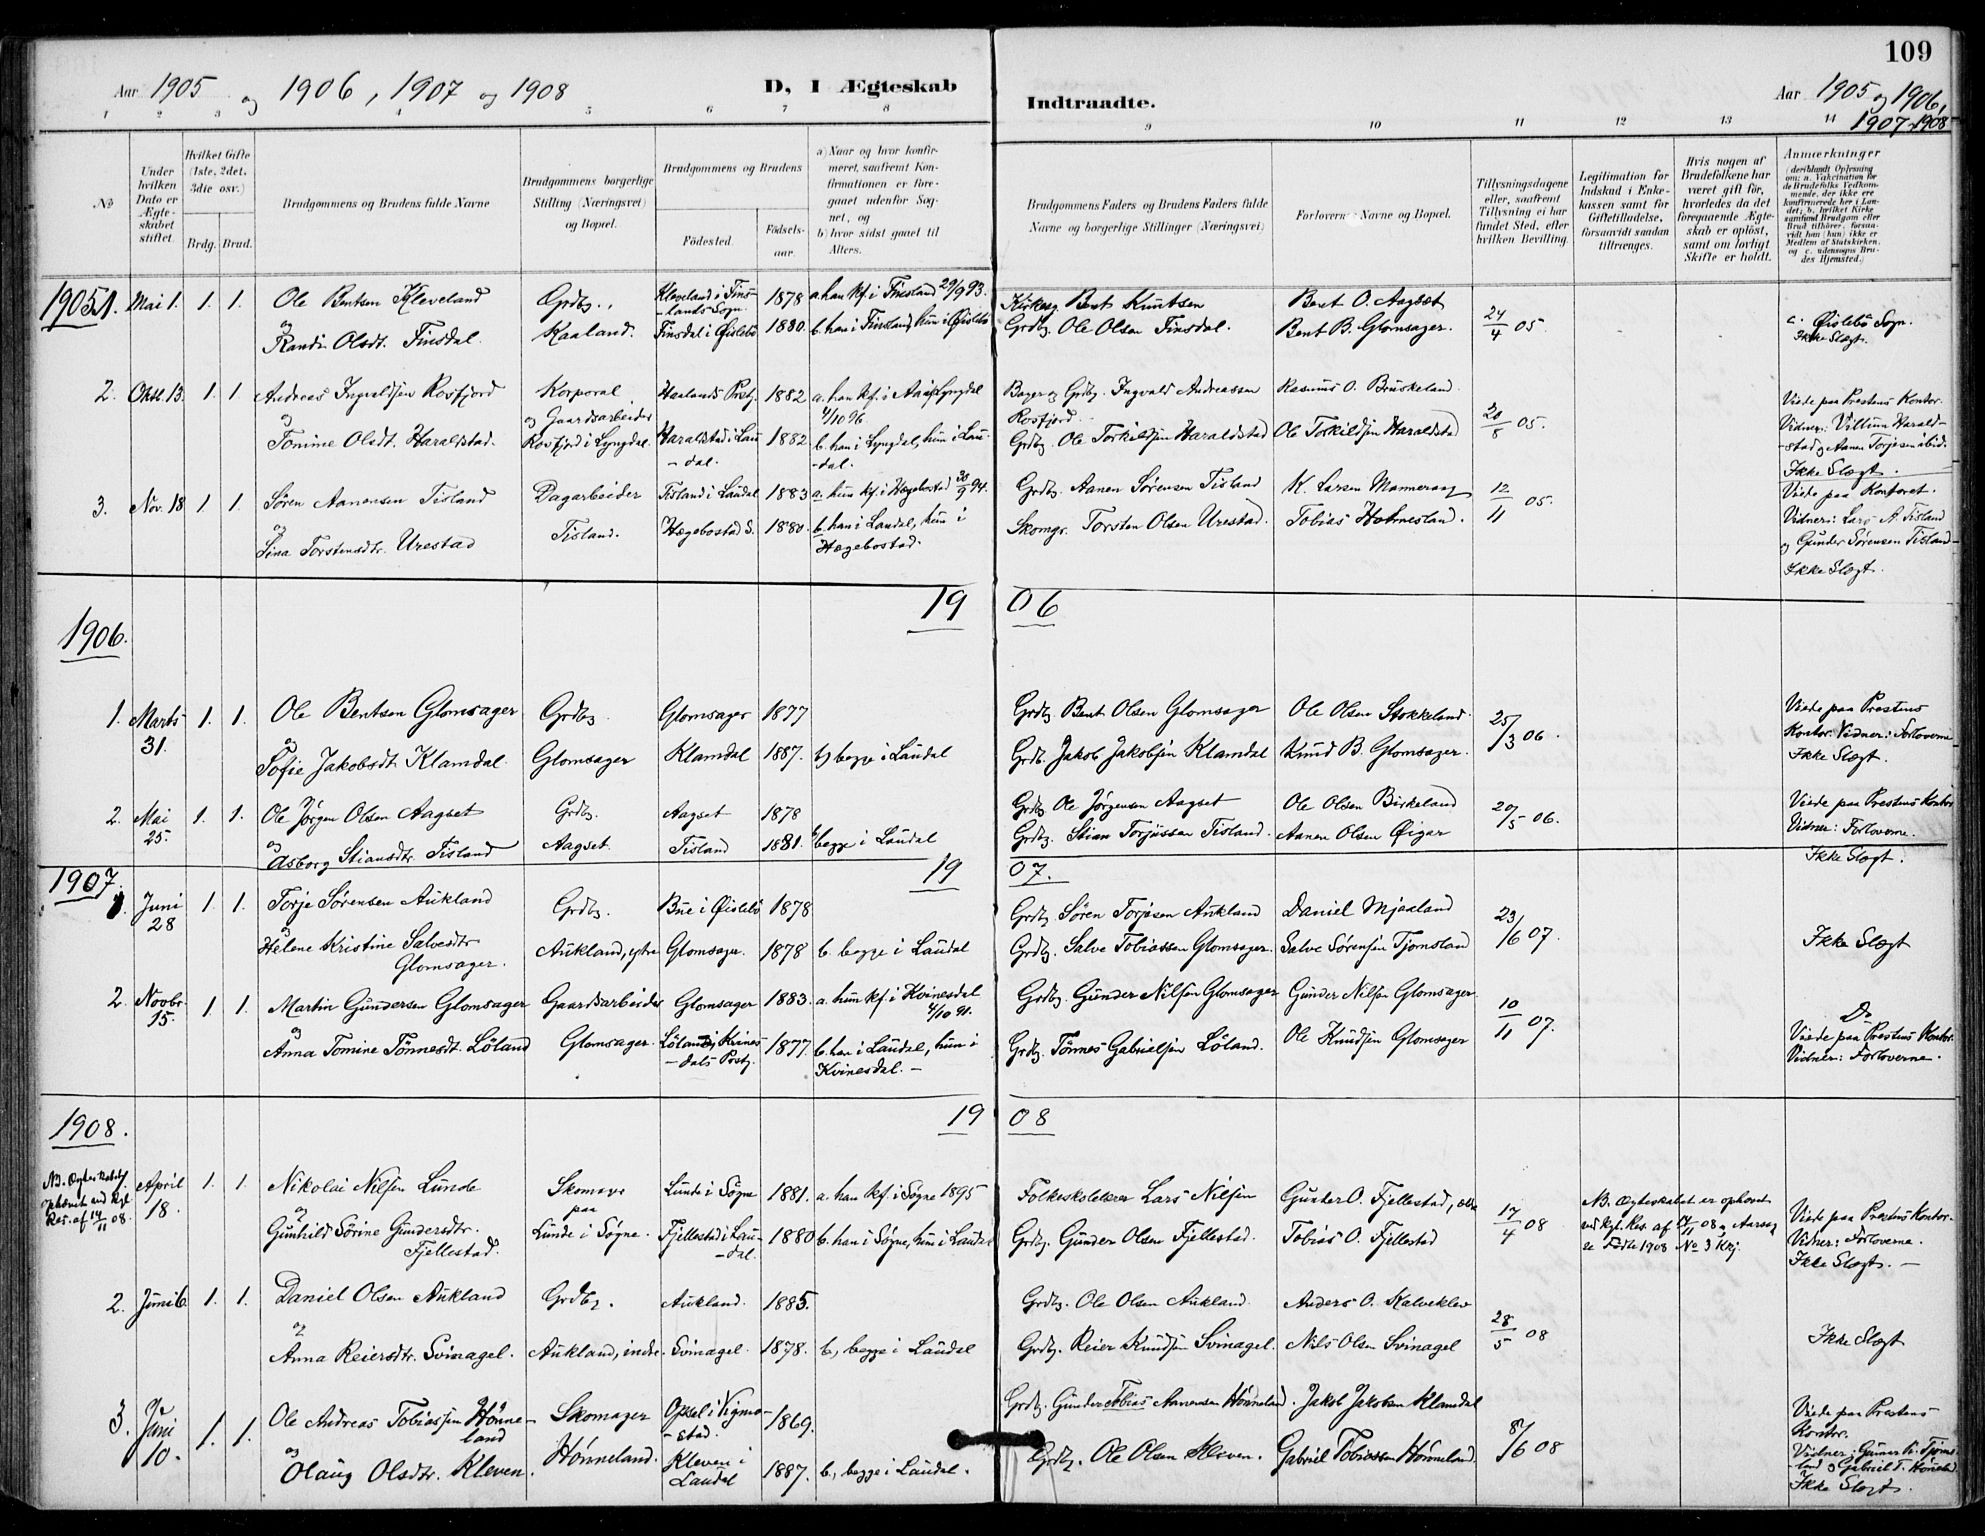 109
Aar 1905 og 1906, 1907 og 1908 D, I Ægteskab Indtraadte. Aar 1905 og 1906,
1907 1908
1 2 3 4 5 6 7 8 9 10 11 12 13 14
№
Under hvilken Dato er Ægteskabet stiftet.
Hvilket Gifte (1ste, 2det, 3die osv.)
Brdg. Brud.
Brudgommens og Brudens fulde Navne
Brudgommens borgerlige Stilling (Næringsvei) og Bopæl.
Brudgommens og Brudens
Fødested. Fødselsaar.
a) Naar og hvor konfirmeret, saafremt Konfirmationen er foregaaet udenfor Sognet, og
b) hvor sidst gaaet til Alters.
Brudgommens Faders og Brudens Faders fulde Navne og borgerlige Stillinger (Næringsvei)
Forlovernes Navne og Bopæl.
Tillysningsdagene eller, saafremt Tillysning ei har fundet Sted, efter hvilken Bevilling.
Legitimation for Indskud i Enkekassen samt for Giftetilladelse, forsaavidt saadan tiltrænges.
Hvis nogen af Brudefolkene har været gift før, hvorledes da det foregaaende Ægteskab er opløst, samt om lovligt Skifte er holdt.
Anmærkninger
(deriblandt Oplysning om: a. Vakcination for de Brudefolks Vedkommende, der ikke ere konfirmerede her i Landet; b. hvilket Kirkesamfund Brudgom eller Brud tilhører, forsaavidt han (hun) ikke er Medlem af Statskirken, og c. udensogns Brudes Hjemsted.)
1905 1. Mai 1. 1. 1. Ole Bentsen Kleveland Grdbg. Kleveland i Fins- 1878 a. han kf. i Finsland 29/9 93. Kirkesg. Bent Knutsen Bent O. Aagset 24/4 05.
og -lands Sogn.
Randi Olsdt. Finsdal Kaaland. Finsdal i Øislebø 1880. b. han i Finsland, hun i Øislebø Grdbg. Ole Olsen Finsdal. Bent B. Glomsager. c. Øislebø Sogn.
Ikke Slægt.
2. Oktb. 13. 1. 1. Andreas Ingvaldsen Rosfjord Korporal Haalands Prstg. 1882 a. han kf. i Lyngdal Grdbg. Ingvald Andreassen Rasmus O. Bruskeland 20/8 05. Viede paa Prestens Kontor.
og og Gaardsarbeider 4/10 96 Rosfjord Vidner: Villum Harald-
Tomine Olsdt. Haraldstad. Rosfjord i Lyngdal. Haraldstad i Lau- 1882 b. han i Lyngdal, hun i Lau- Grdbg. Ole Torkildsen Haraldstad Ole Torkildsen Haraldstad -stad og Aanen Torjesen ibid.
-dal. -dal. Ikke Slægt.
3. Nov. 18 1 1 Søren Aanensen Tisland Dagarbeider Tisland i Laudal 1883 a. hun kf. i Hægebostad 30/9 94. Grdbg. Aanen Sørensen Tisland K. Larsen Manneraag 12/11 05. Viede paa Kontoret.
og Vidner: Lars A. Tisland
Sina Torstensdtr. Urestad Tisland. Hægebostad S. 1880. b. han i Laudal, hun i Skomgr. Torsten Olsen Urestad. Tobias Holmesland. og Gunder Sørensen Tisland-
Hægebostad. Ikke Slægt.
19 06
1906.
1. Marts 1. 1. Ole Bentsen Glomsager Grdbg. Glomsager 1877 Grdbg. Bent Olsen Glomsager Ole Olsen Stokkeland. 25/3 06. Viede paa Prestens
31. og Kontor. Vidner: Forloverne
Sofie Jakobsdt. Klamdal. Glomsager Klamdal 1887. b) begge i Laudal Grdb. Jakob Jakobsen Klamdal Knud B. Glomsager. Ikke Slægt.
2. Mai 1. 1. Ole Jørgen Olsen Aagset Grdbg. Aagset 1878 Grdbg Ole Jørgensen Aagset Ole Olsen Birkeland 20/5 06. Viede paa Prestens Kontor
25. og Vidner: Forloverne.
Asborg Stiansdtr. Tisland Aagset. Tisland 1881. b. begge i Laudal Grdbg. Stian Torjussen Tisland. Aanen Olsen Øigar Ikke Slægt.
1907. 19 07.
1. Juni 1. 1. Torje Sørensen Aukland Grdbg. Bue i Øislebø 1878 Grdbg. Søren Torjesen Aukland Daniel Mjaaland 23/6 07.
28 og
Helene Kristine Salvesdtr Aukland, ytre Glomsager. 1878 b. begge i Laudal Grdbg. Salve Tobiassen Glomsager. Salve Sørensen Tjomsland Ikke Slægt
Glomsager.
2. Novbr. 1 1. Martin Gundersen Glomsager Gaardsarbeider Glomsager 1883. a. hun kf. i Kvinesdal Grdbg. Gunder Nilsen Glomsager Gunder Nilsen Glomsager. 10/11 07. Do
15. og 4/10 91.
Anna Tomine Tønnesdt. Løland Glomsager. Løland i Kvines- 1877. b. han i Laudal, hun i Grdbg. Tønnes Gabrielsen Løland. Ole Knudsen Glomsager Viede paa Prestens Kontor.
-dals Prstg. Kvinesdal.- Vidner: Forloverne.
1908. 19 08
NB. Ægteskabet April 1. 1. Nikolai Nilsen Lunde Skomager Lunde i Søgne 1881. a. han kf. i Søgne 1895 Folkeskolelærer Lars Nilsen Gunder O. Fjellestad, 17/4 08 NB. Ægteskabet er ophævet Viede paa Prestens Kontor.
ophævet ved Kgl. 18. og paa ved Kgl. Res. af 14/11 08, Vidner: Forloverne.
Res. af 14/11 08. Gunhild Sørine Gundersdtr. Lunde i Søgne. Fjellestad i Lau- 1880 b. han i Søgne, hun i Laudal Grdbg. Gunder Olsen Fjellestad. Tobias O. Fjellestad se Fødte 1908 No 3 Kj. Ikke Slægt.-
Fjellestad. -dal.
2. Juni 6. 1. 1. Daniel Olsen Aukland Grdbg. Aukland. 1885. Grdbg. Ole Olsen Aukland. Anders O. Kalveklev 28/5 08
og
Anna Reiersdtr. Svinagel. Aukland, indre. Svinagel. 1878. b, begge i Laudal Grdbg. Reier Knudsen Svinagel. Nils Olsen Svinagel Ikke Slægt
3. Juni 1. 1. Ole Andreas Tobiassen Hønne- Skomager Opsal i Vigmo- 1869. Grdbg. Gunder Tobias Aanensen Hønneland. Jakob Jakobsen Klamdal 8/6 08 Viede paa Prestens
10. land -stad. Kontor.
og Vidner: Tjoms-
Olaug Olsdtr. Kleven. Hønneland. Kleven i 1887. b, begge i Laudal. Grdbg. Ole Olsen Kleven. Gabriel Tobiassen Hønneland. -land og Gabriel T. Hønneland.
Laudal Ikke Slægt.